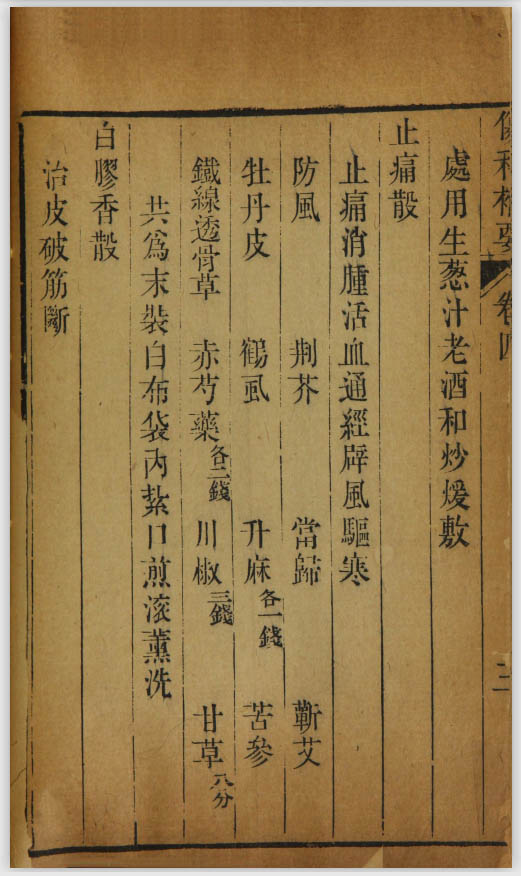 傷科補要 卷四 二
處用生葱汁老酒和炒煖敷
止痛散
止痛消腫活血通經辟風驅寒
防風 荆芥 當歸 蘄艾
牡丹皮 鶴虱 升麻各一錢 苦參
鐵線透骨草 赤芍藥各二錢 川椒三錢 甘草八分
共爲末裝白布袋内紮口煎滾薰洗
白膠香散
治皮破筋斷